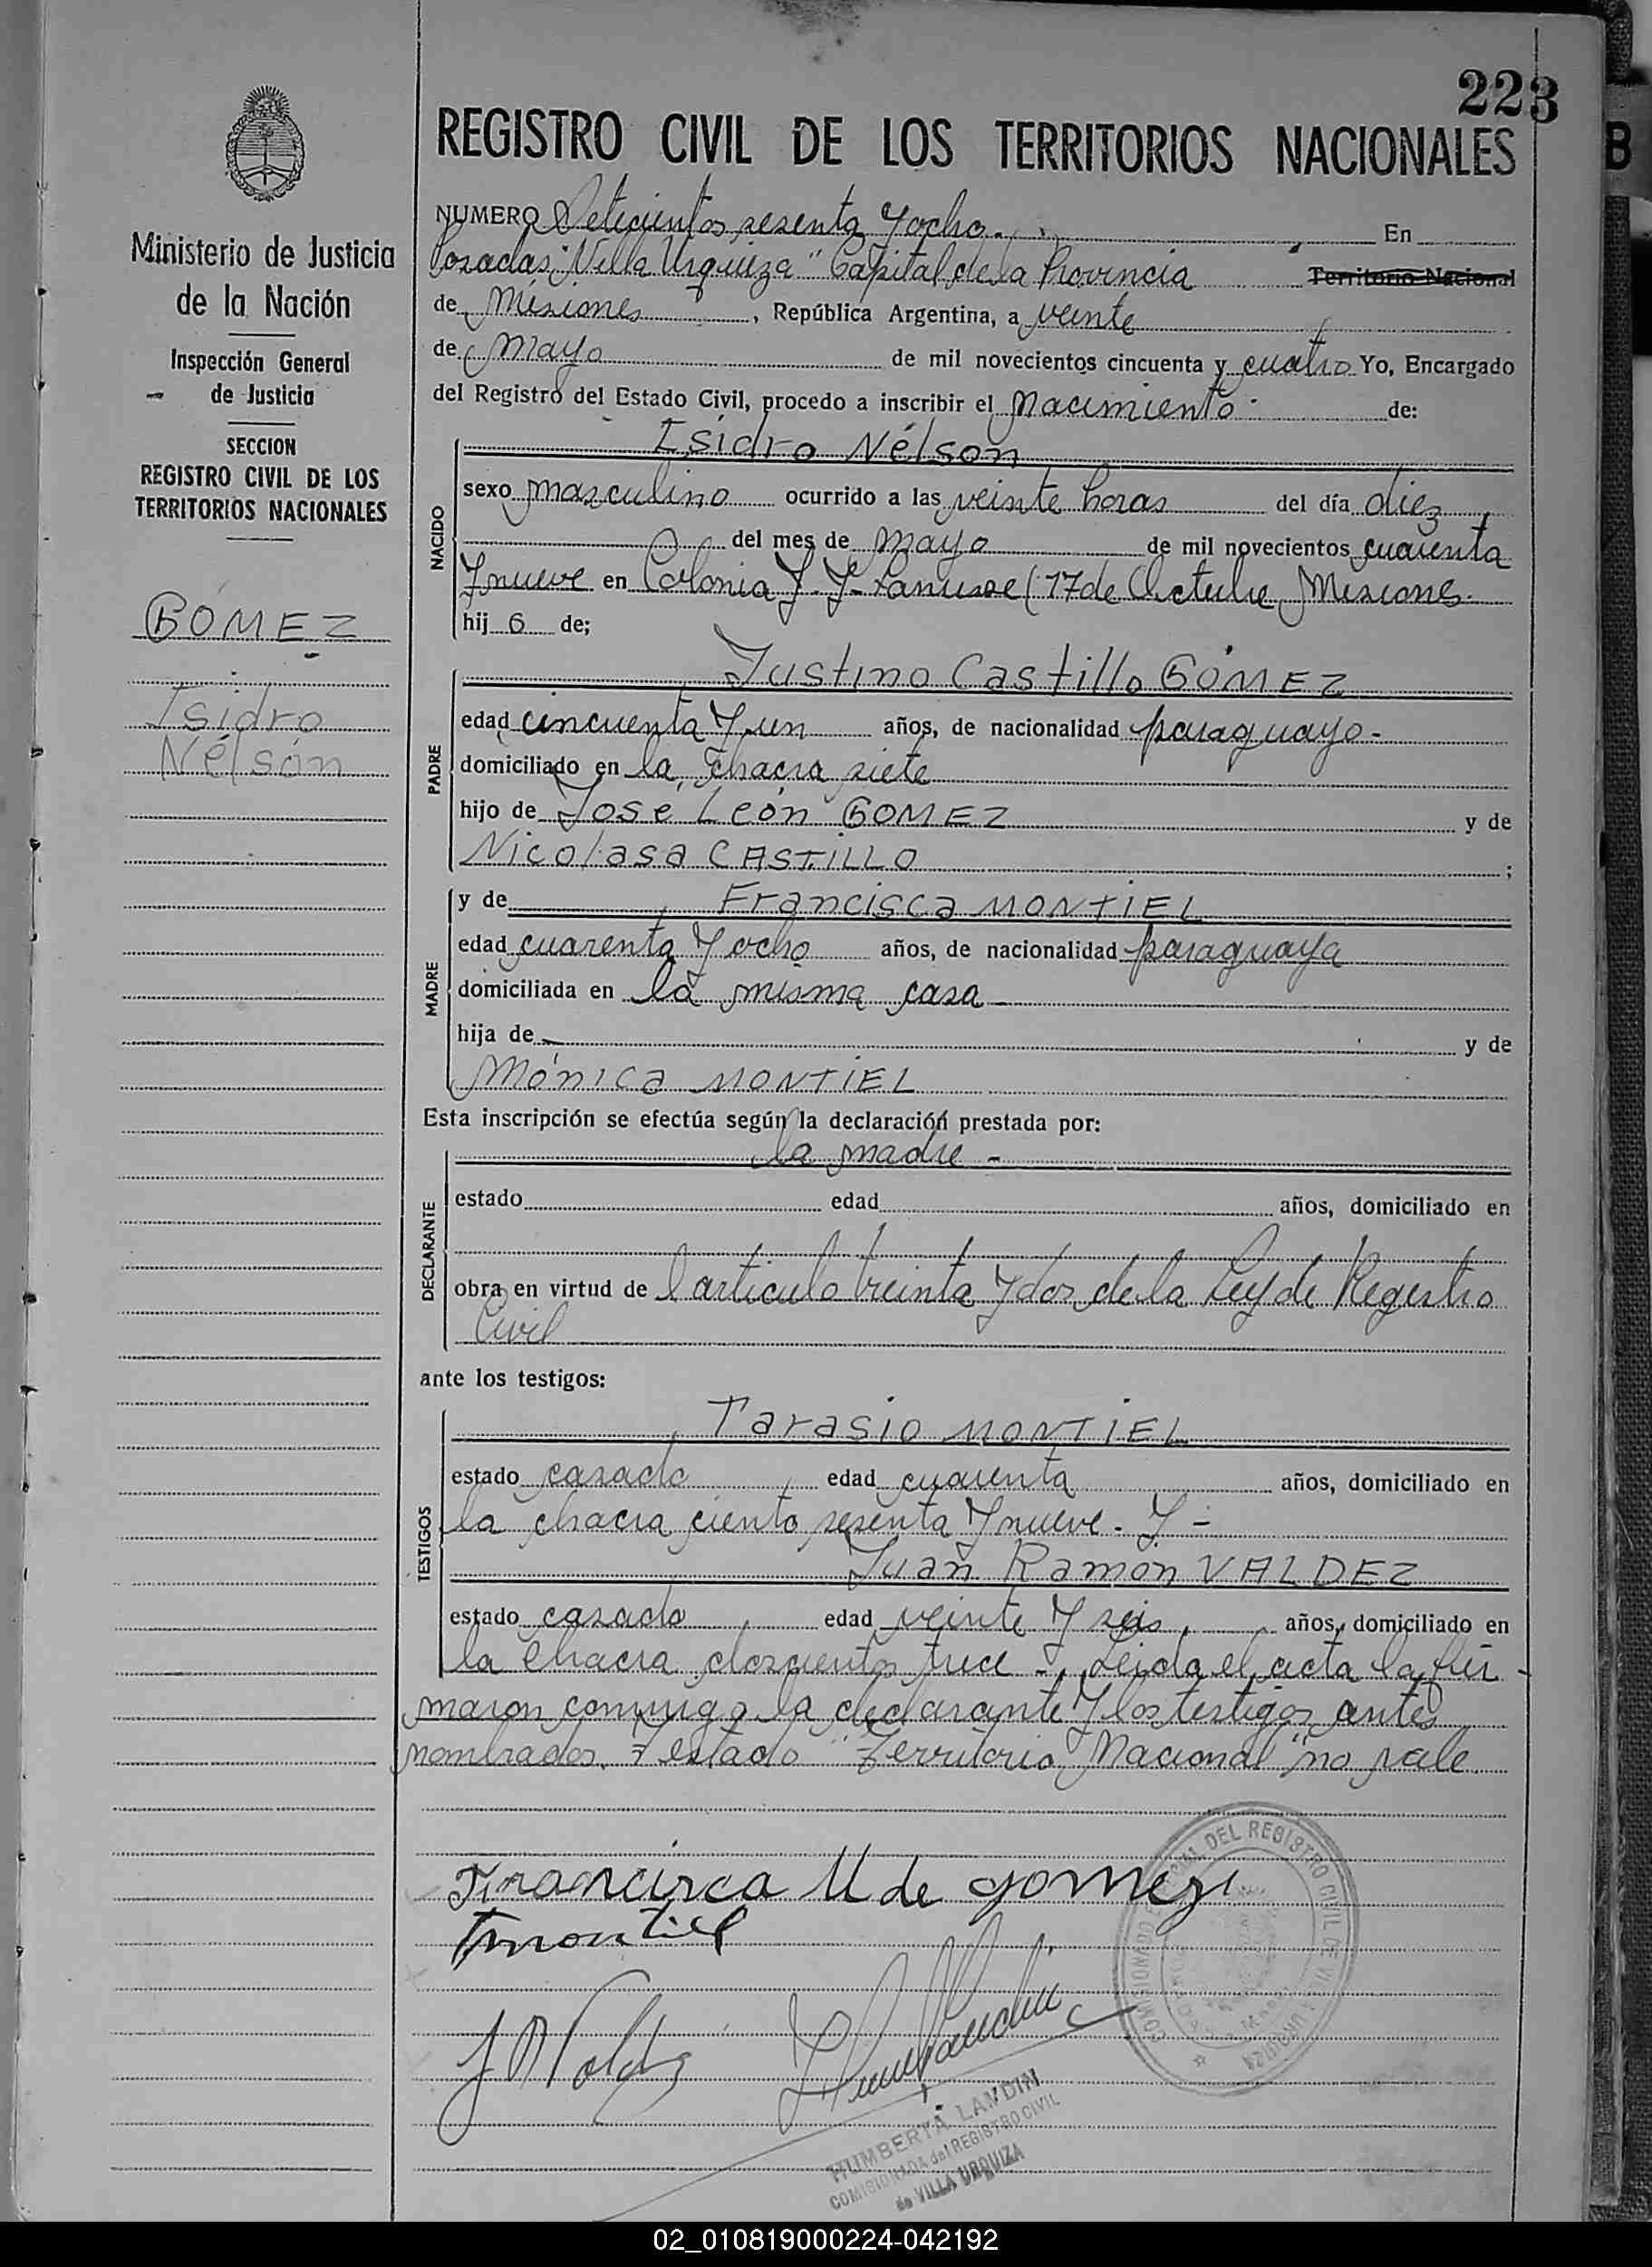 223
REGISTRO CIVIL DE LOS TERRITORIOS NACIONALES
B
Ministerio de Justicia
de la Nación
Inspección General
de Justicia
SECCION
REGISTRO CIVIL DE LOS
TERRITORIOS NACIONALES
GÓMEZ
Isidro
Nélson
NUMERO Setecientos sesenta y ocho. En
Posadas "Villa Urquiza" Capital de la Provincia Territorio Nacional
de Misiones, República Argentina, a veinte
de mayo de mil novecientos cincuenta y cuatro Yo, Encargado
del Registro del Estado Civil, procedo a inscribir el Nacimiento de:
NACIDO
Isidro Nélson
sexo masculino ocurrido a las veinte horas del día diez
del mes de mayo de mil novecientos cuarenta
y nueve en Colonia J. J. Lanusse (17 de Octubre Misiones.
hij o de;
PADRE
Justino Castillo GÓMEZ
edad cincuenta y un años, de nacionalidad paraguayo -
domiciliado en la chacra siete
hijo de José León GOMEZ y de
Nicolasa CASTILLO ;
MADRE
y de Francisca MONTIEL
edad cuarenta y ocho años, de nacionalidad paraguaya
domiciliada en la misma casa
hija de y de
Mónica MONTIEL
Esta inscripción se efectúa según la declaración prestada por:
DECLARANTE
la madre -
estado edad años, domiciliado en
obra en virtud de l articulo treinta y dos de la Ley de Registro
Civil
ante los testigos:
TESTIGOS
Tarasio MONTIEL
estado casado edad cuarenta años, domiciliado en
la chacra ciento sesenta y nueve. y -
Juan Ramón VALDEZ
estado casado edad veinte y seis años, domiciliado en
la chacra doscientos trece -. Leida el acta la fir-
maron conmigo la declarante y los testigos antes
nombrados. Testado "Territorio Nacional" no vale
Francisca M de gomez
T montiel
J R Valdez
COMISIONADO ESPECIAL DEL REGISTRO CIVIL DE VILLA URQUIZA
HUMBERTA LANDIN
COMISIONADA del REGISTRO CIVIL
de VILLA URQUIZA
02_010819000224-042192